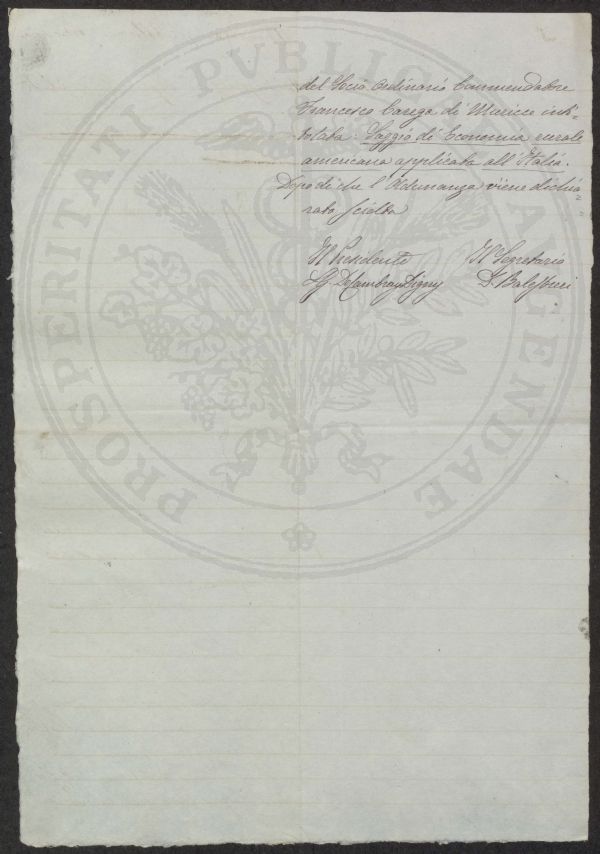 del Socio Ordinario Commendatore
Francesco Carega di Muricce inti-
tolata. Saggio di Economia rurale
americana applicata all'Italia.
Dopo di che l'Adunanza viene dichia
rata sciolta
Il Presidente Il Segretario
L. G. De Cambray Digny
PROSPERITATI PVBLICAE AVGENDAE